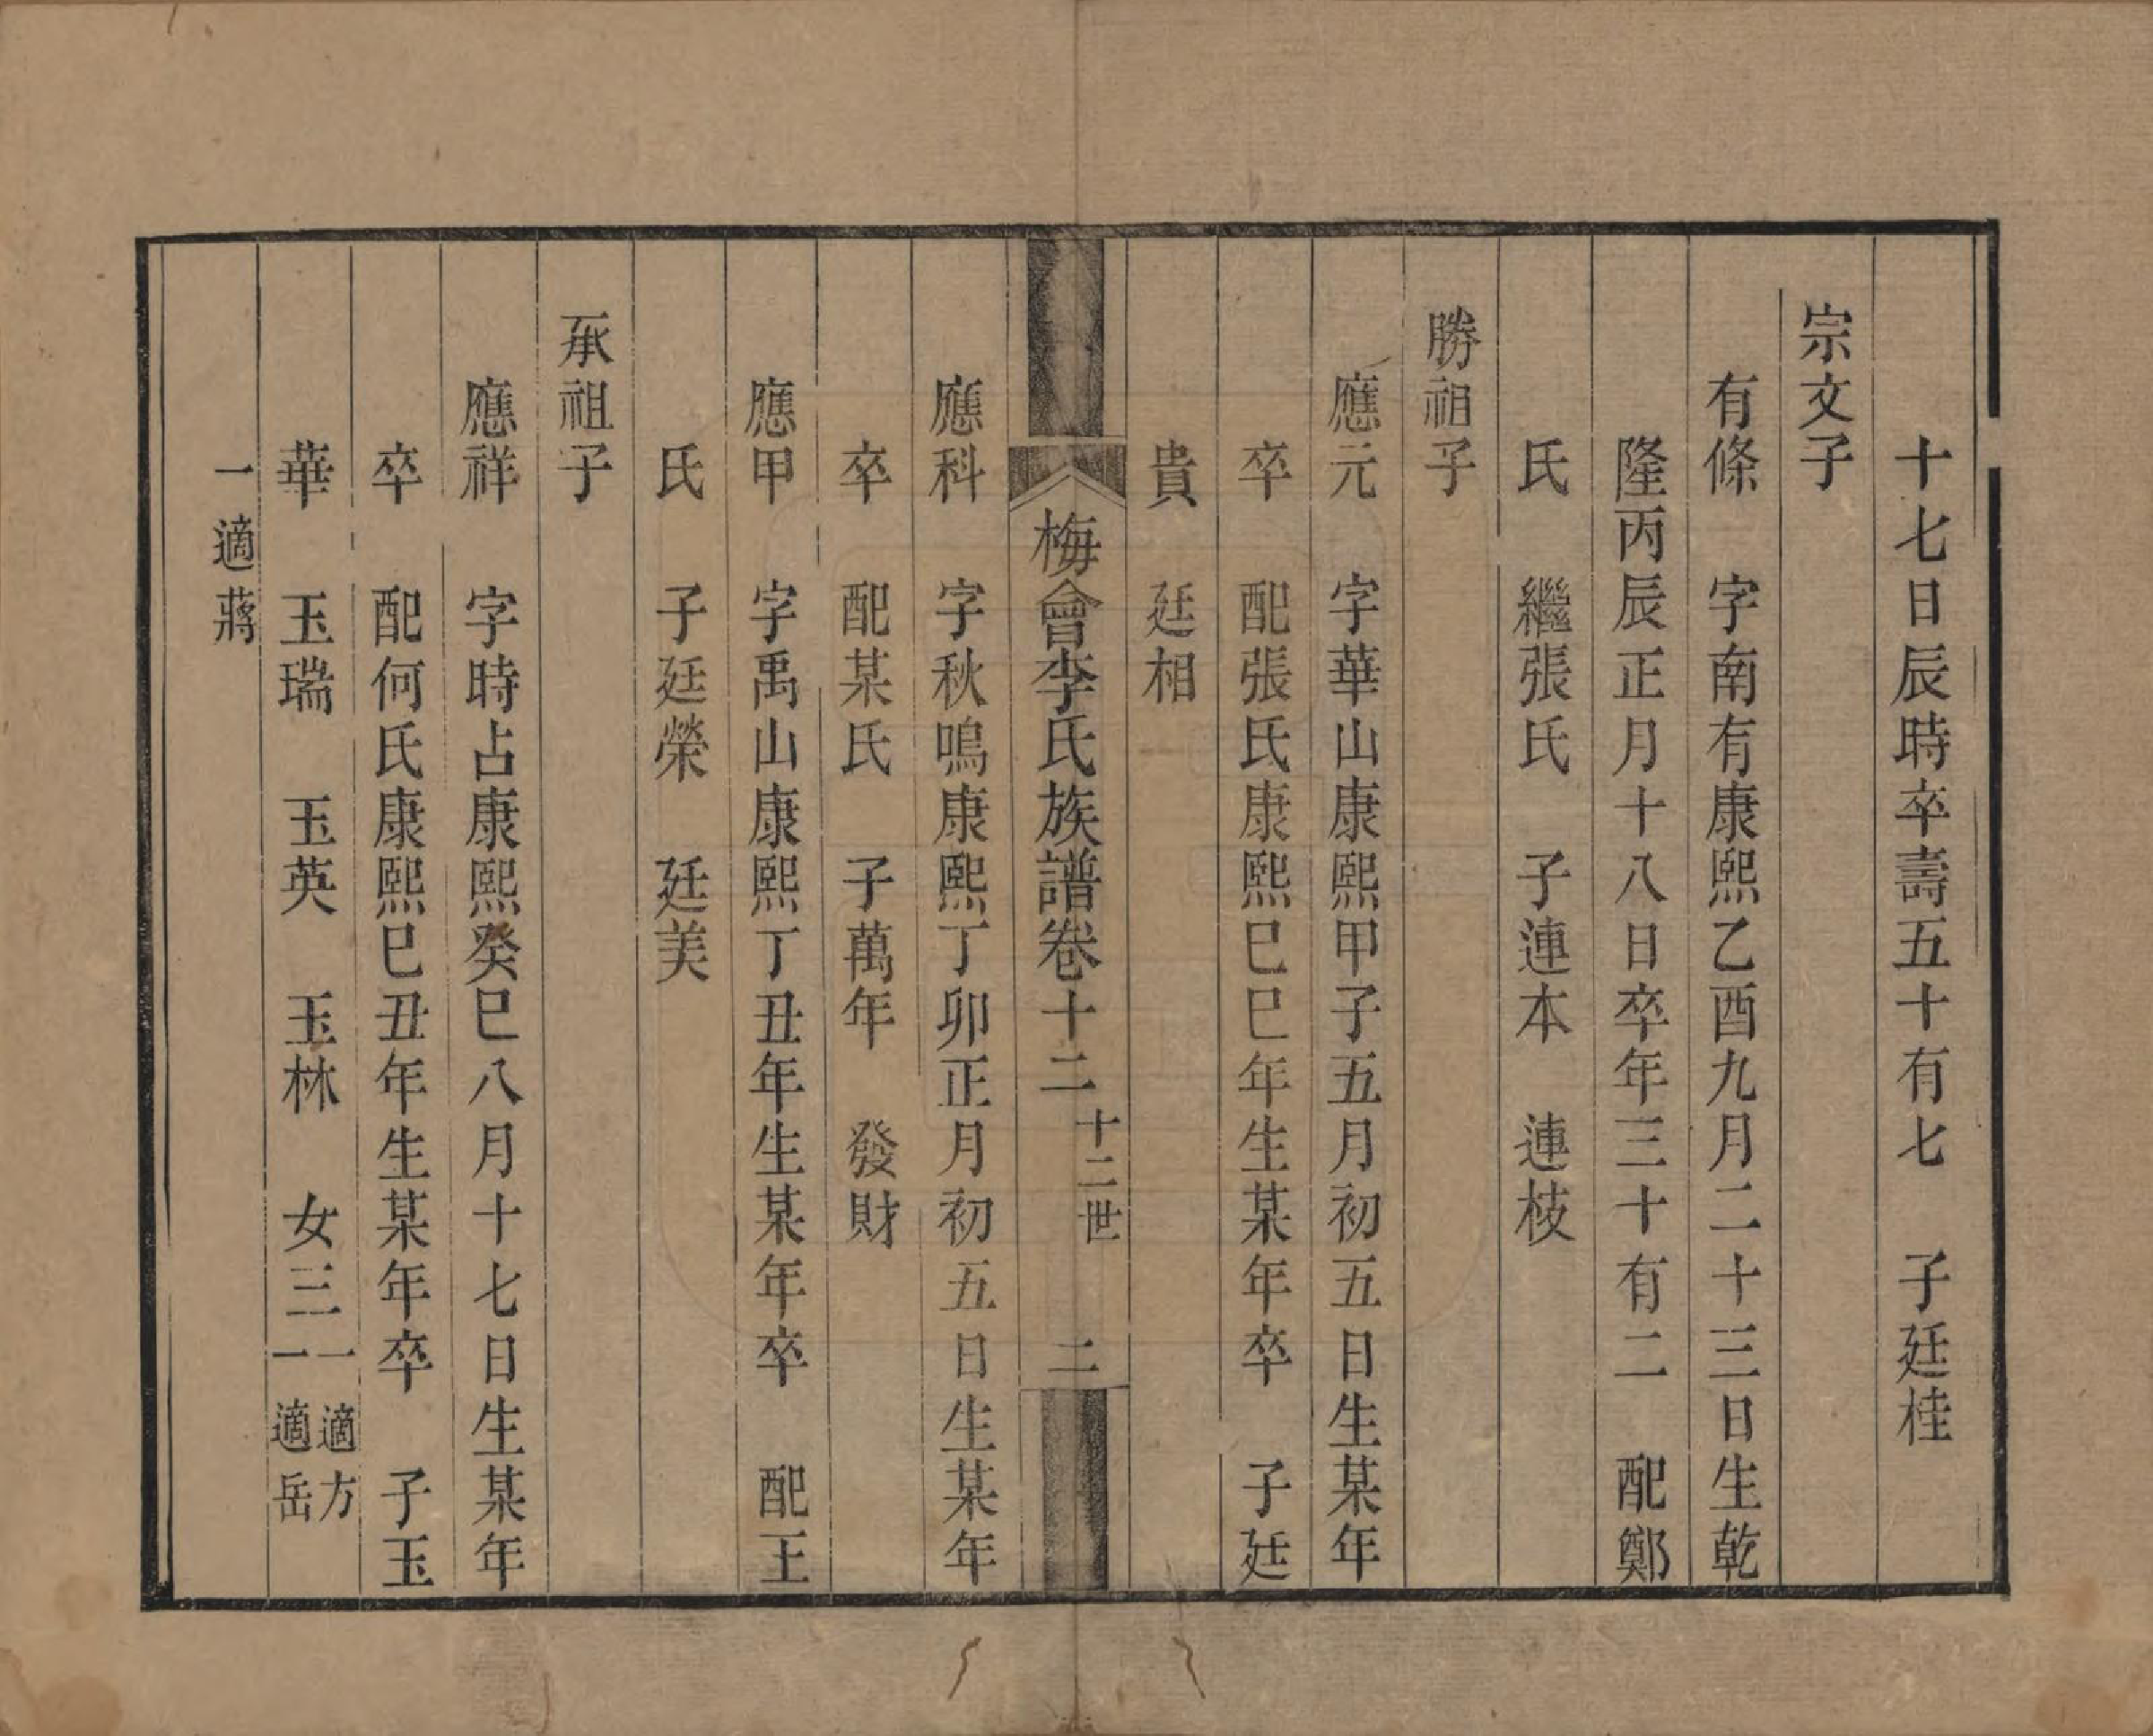 十七日辰時卒壽五十有七　子廷桂
宗文子
有條　字南有康熙乙酉九月二十三日生乾
隆丙辰正月十八日卒年三十有二　配鄭
氏　繼張氏　子連本　連枝
勝祖子
應元　字華山康熙甲子五月初五日生某年
卒　配張氏康熙巳巳年生某年卒　子廷
貴　廷相
梅會李氏族譜卷十二　十二世　二
應科　字秋鳴康熙丁卯正月初五日生某年
卒　配某氏　子萬年　發財
應甲　字禹山康熙丁丑年生某年卒　配王
氏　子廷榮　廷美
承祖子
應祥　字時占康熙癸巳八月十七日生某年
卒　配何氏康熙巳丑年生某年卒　子玉
華　玉瑞　玉英　玉林　女三　一適方　一適岳
一適蔣